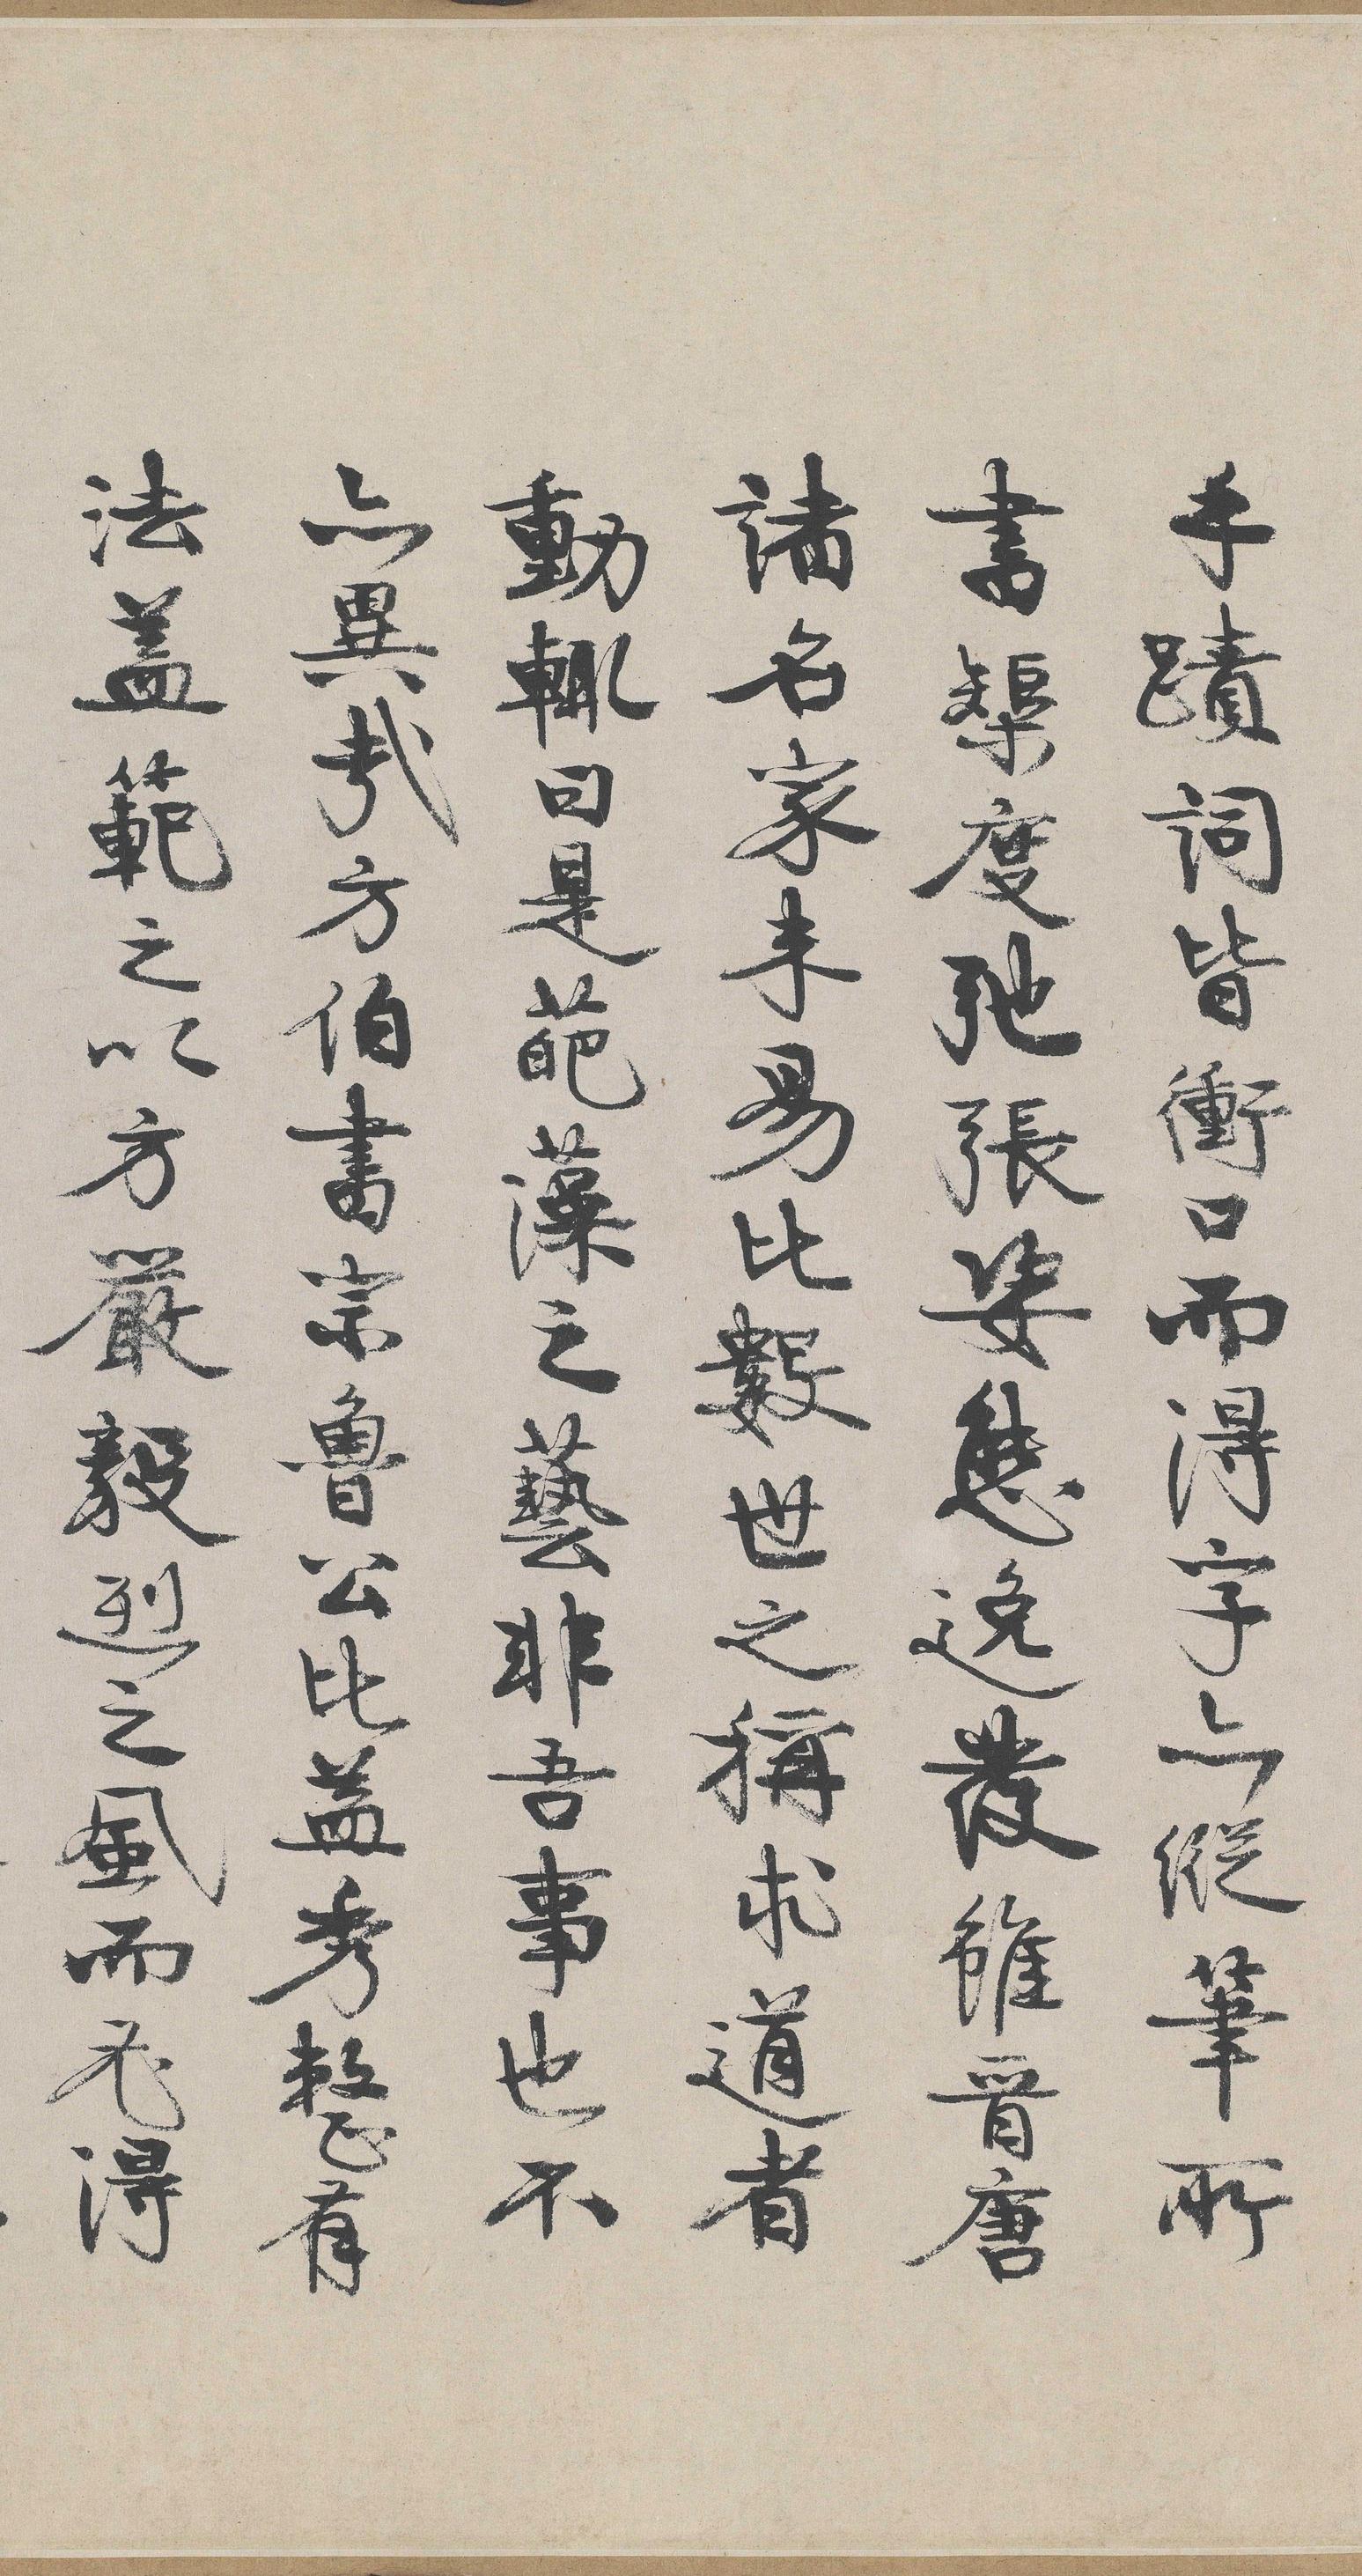 手蹟詞皆衝口而得字亦縱筆所
書榘度弛張姿態逸發雖晉唐
諸名家未易比數世之稱求道者
動輒曰是葩藻之藝非吾事也不
亦異哉方伯書宗魯公比益秀整有
法蓋範之以方嚴毅烈之風而不得